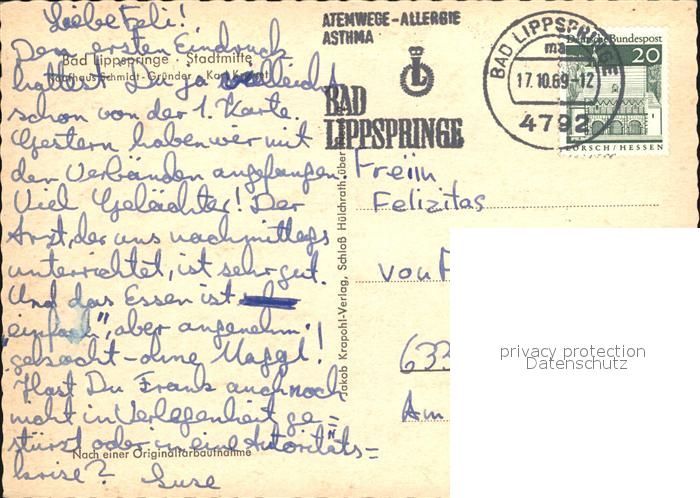 Liebe Feli!
Den ersten Eindruck
hattest Du ja vielleicht
schon von der 1. Karte.
Gestern haben wir mit
den Verbänden angefangen.
Viel Gelächter! Der
Arzt, der uns nachmittags
unterrichtet, ist sehr gut.
Und das Essen ist
„einfach", aber angenehm!
gekocht – ohne Maggi!
Hast Du Frank auch noch
nicht in Verlegenheit ge=
stürzt oder in eine „Autoritäts=
krise"? Suse
Bad Lippspringe · Stadtmitte
Kaufhaus Schmidt · Gründer · Karl
Nach einer Originalfarbaufnahme
Jakob Krapohl-Verlag, Schloß Hülchrath über
ATEMWEGE-ALLERGIE
ASTHMA
BAD
LIPPSPRINGE
BAD LIPPSPRINGE
ma
17.10.69-12
4792
Deutsche Bundespost
20
LORSCH/HESSEN
Freiin
Felizitas
von
633
Am
privacy protection
Datenschutz